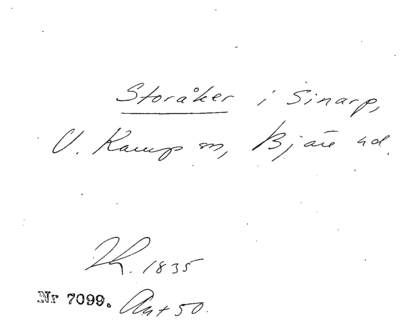 Storåker i Sinarp,
V. Karup sn, Bjäre hd.
Lh. 1835
Nr 7099. Ant 50.